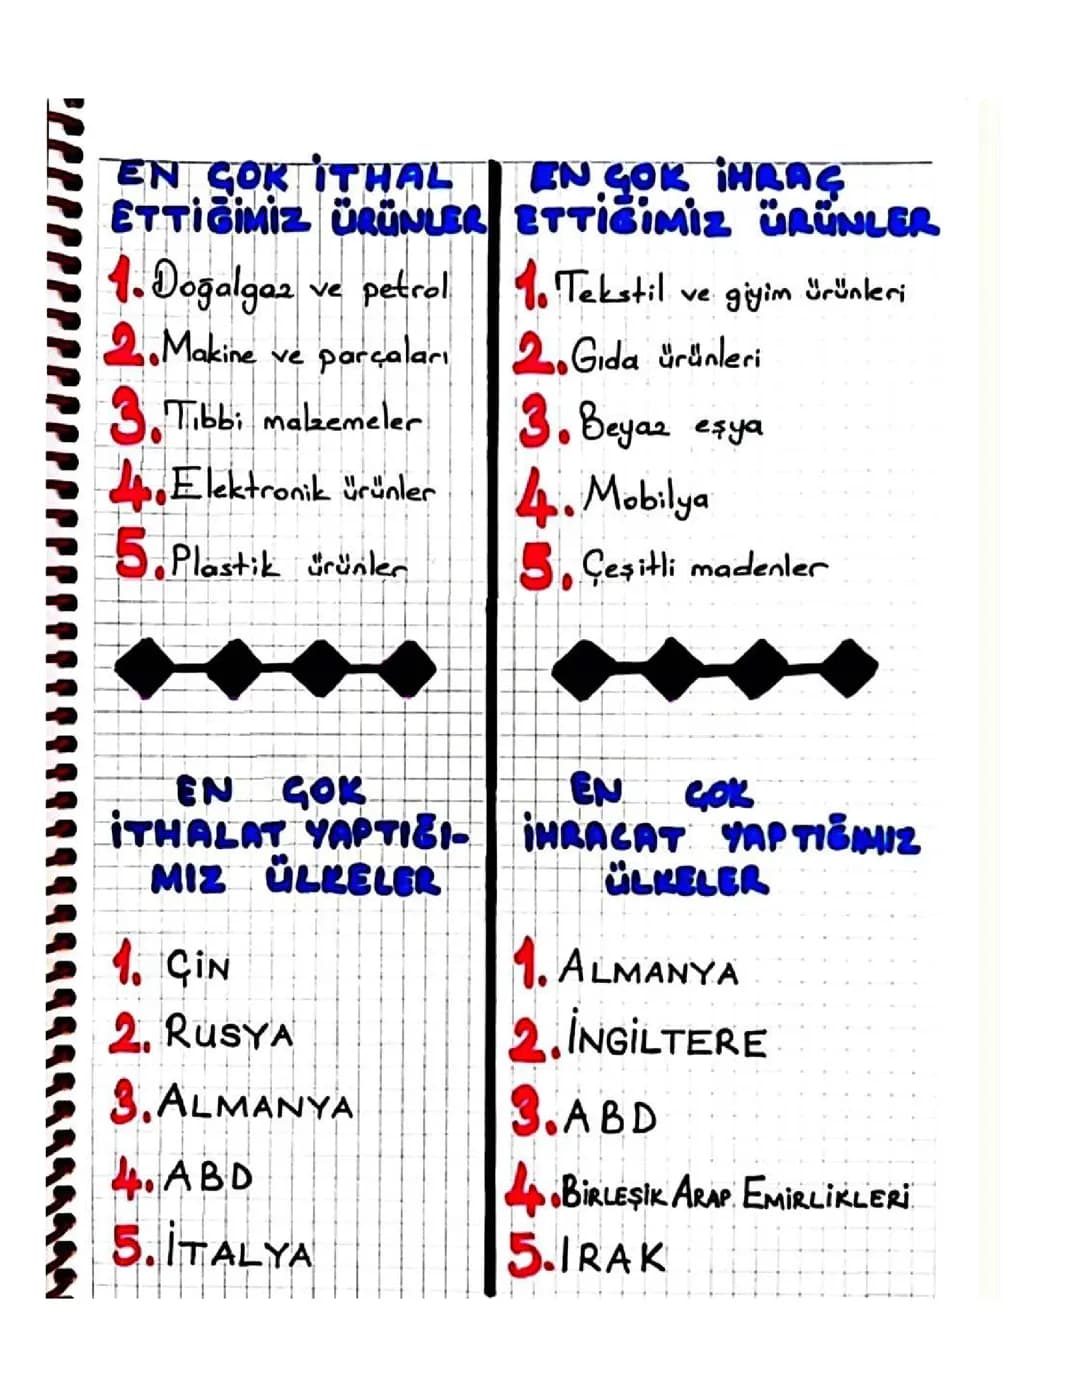 EN ÇOK İTHAL
ETTİĞİMİZ ÜRÜNLER
1. Doğalgaz ve petrol
2. Makine ve parçaları
3. Tıbbi malzemeler
4. Elektronik ürünler
5. Plastik ürünler
EN ÇOK İHRAÇ
ETTİĞİMİZ ÜRÜNLER
1. Tekstil ve giyim ürünleri
2. Gıda ürünleri
3. Beyaz eşya
4. Mobilya
5. Çeşitli madenler
EN ÇOK
İTHALAT YAPTIĞI-
MIZ ÜLKELER
1. ÇİN
2. RUSYA
3. ALMANYA
4. ABD
5. İTALYA
EN ÇOK
İHRACAT YAPTIĞIMIZ
ÜLKELER
1. ALMANYA
2. İNGİLTERE
3. ABD
4. BİRLEŞİK ARAP EMİRLİKLERİ
5. IRAK